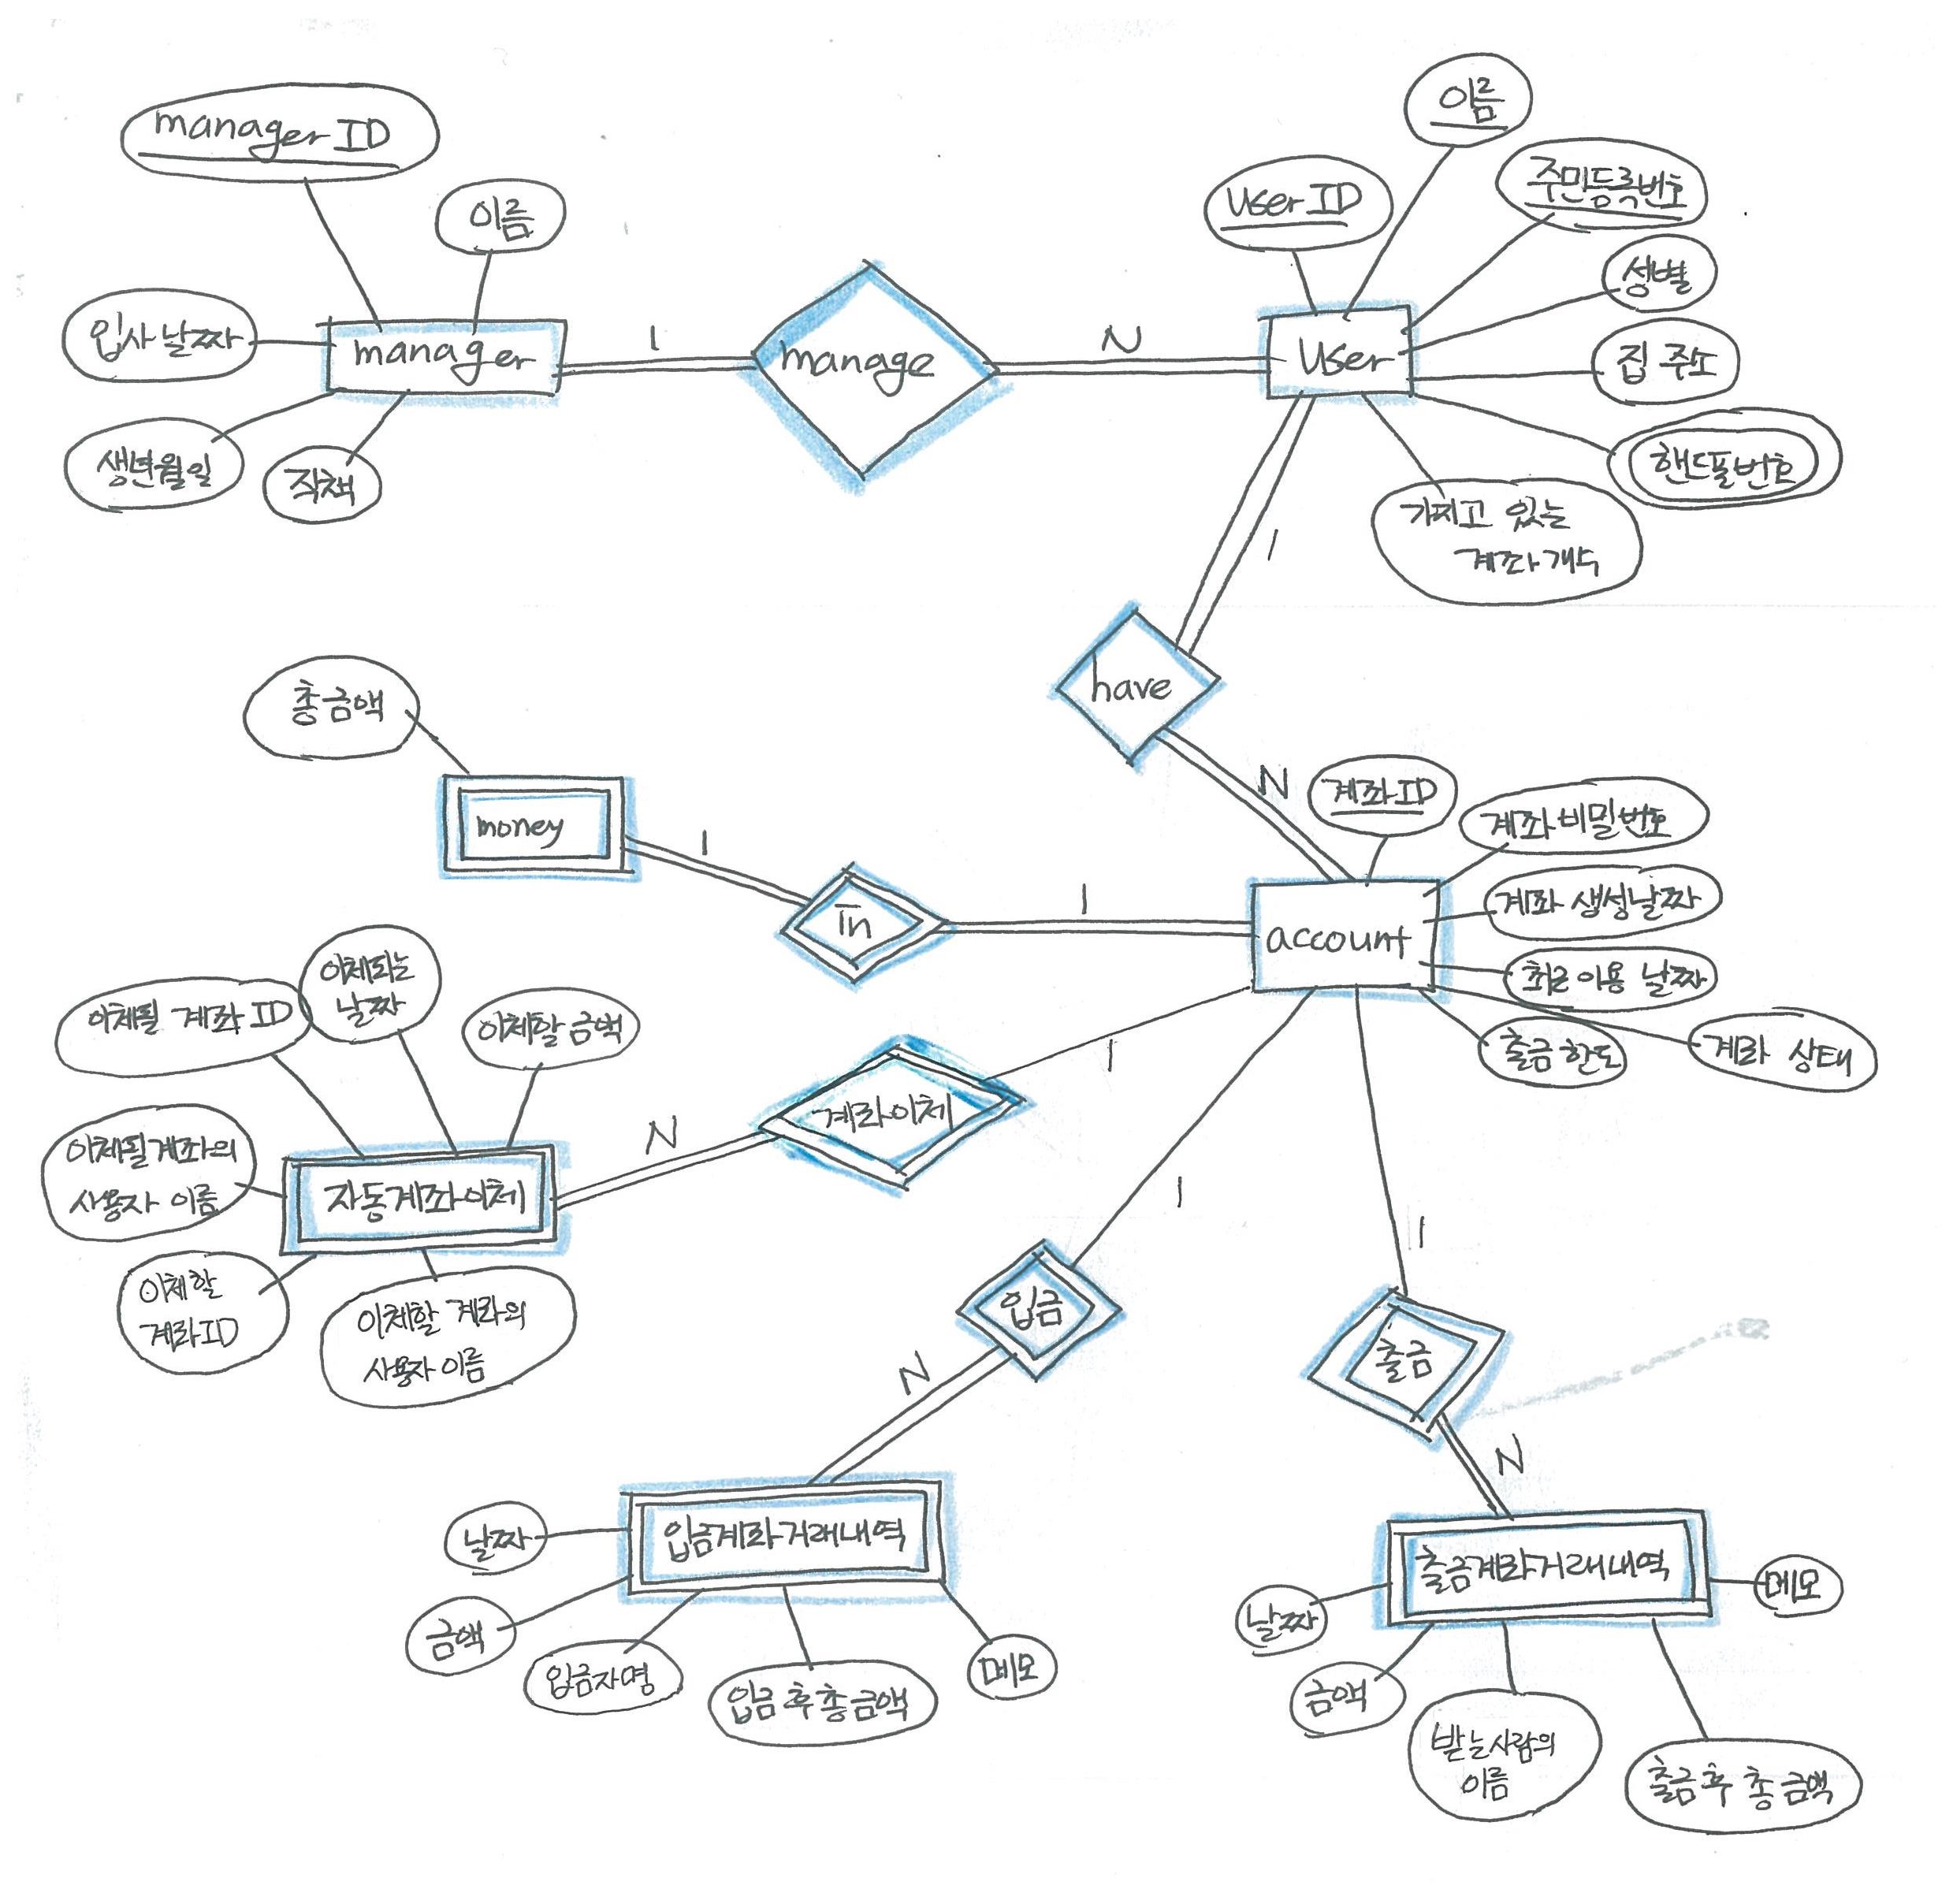 manager ID
이름
입사날짜
manager
생년월일
직책
1
manage
N
이름
User ID
주민등록번호
성별
User
집 주소
핸드폰번호
가지고 있는
계좌개수
1
have
N
총금액
money
1
In
1
계좌ID
계좌비밀번호
계좌 생성날짜
account
최근이용 날짜
출금한도
계좌 상태
이체되는
날짜
이체될 계좌ID
이체할금액
이체될계좌의
사용자 이름
자동계좌이체
이체할
계좌ID
이체할 계좌의
사용자 이름
N
계좌이체
1
1
입금
N
1
출금
N
입금계좌거래내역
날짜
금액
입금자명
입금후총금액
메모
출금계좌거래내역
메모
날짜
금액
받는사람의
이름
출금후 총금액